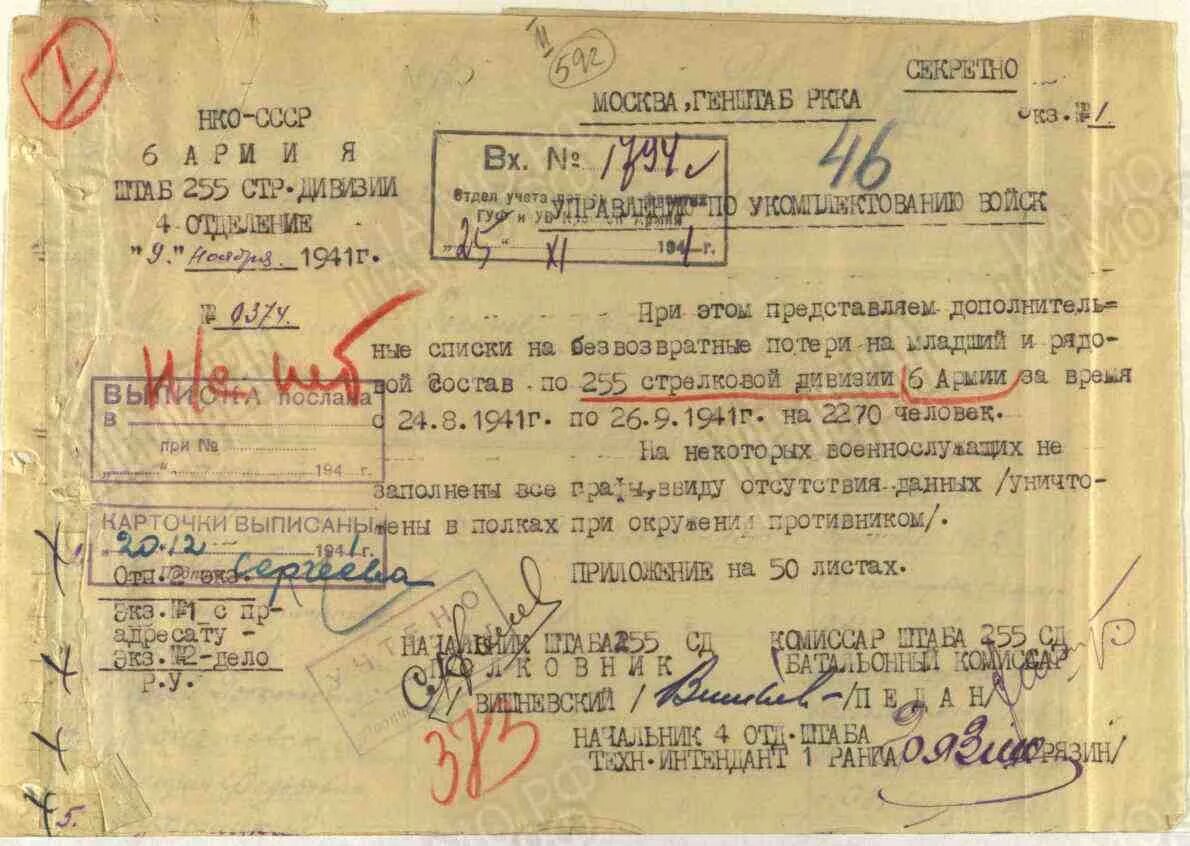 592
СЕКРЕТНО
Экз.№ 1.
МОСКВА, ГЕНШТАБ РККА
46
НКО-СССР
6 АРМИЯ
ШТАБ 255 СТР.ДИВИЗИИ
4 ОТДЕЛЕНИЕ
"9." Ноября 1941г.
№ 0374.
Вх. № 1794
Отдел учета
ГУФ и У
"25" XI 1941 г.
УПРАВЛЕНИЮ ПО УКОМПЛЕКТОВАНИЮ ВОЙСК
При этом представляем дополнитель=
ные списки на безвозвратные потери на младший и рядо-
вой состав по 255 стрелковой дивизии 6 Армии за время
с 24.8.1941г. по 26.9.1941г. на 2270 человек.
На некоторых военнослужащих не
заполнены все графы, ввиду отсутствия данных /уничто-
жены в полках при окружении противником/.
ПРИЛОЖЕНИЕ на 50 листах.
ВЫПИСКА послана
в
при №
" " 194 г.
КАРТОЧКИ ВЫПИСАНЫ
"20.12 1941г.
Сергеева
Отп.2 экз.
Экз.№1 с пр-
адресату -
Экз.№2-дело
Р.У.
УЧТЕНО
НАЧАЛЬНИК ШТАБА 255 СД
ПОЛКОВНИК
ВИШНЕВСКИЙ /
КОМИССАР ШТАБА 255 СД
БАТАЛЬОННЫЙ КОМИССАР
/ПЕДАН/
НАЧАЛЬНИК 4 ОТД.ШТАБА
ТЕХН.ИНТЕНДАНТ 1 РАНГА
373
5.